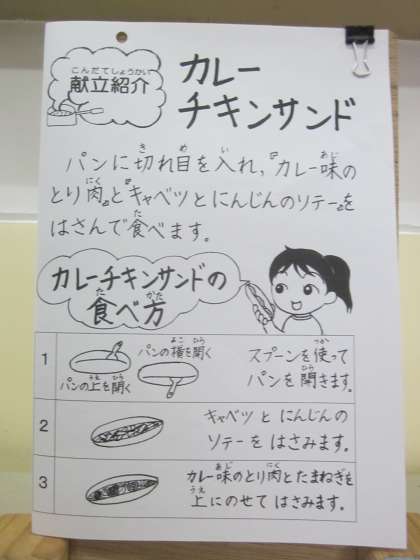 こんだてしょうかい
献立紹介
カレー
チキンサンド
き め い あじ
パンに切れ目を入れ、『カレー味の
にく
とり肉』と『キャベツとにんじんのソテー』を
た
はさんで食べます。
カレーチキンサンドの
た かた
食べ方
1
よこ ひら
パンの横を開く
うえ ひら
パンの上を開く
つか
スプーンを使って
ひら
パンを開きます。
2
キャベツとにんじんの
ソテーをはさみます。
3
あじ にく
カレー味のとり肉とたまねぎを
うえ
上にのせてはさみます。